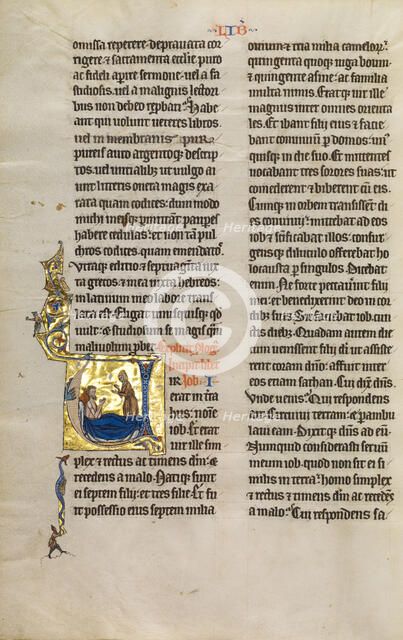 LIB
omissa repetere: depravata cor
rigere: et sacramenta ecclie puro
ac fideli apire sermone: vel a fa
stidiosis vel a malignis lectori
bus non debeo repbari. Habe
ant qui volunt veteres libros.
vel in membranis pur
pureis auro argentoq; descrip
tos. vel uncialib; ut vulgo ai
unt litteris onera magis exa
rata quam codices: dum modo
michi meisq; pmittant paupes
habere cedulas: et non tam pul
chros codices quam emendatos.
Utraq; editio et septuaginta iux
ta grecos: et mea iuxta hebreos:
in latinum meo labore trans
lata est. Eligat unusquisq; qd
vult: et studiosum se magis qm
malivolum pbet.
Iob. I.
VIR
erat in tra
hus: noie
iob. Et erat
vir ille sim
plex et rectus ac timens dm: et
recedens a malo. Natiq; sunt
ei septem filii: et tres filie. Et fu
it possessio eius septem milia
ovium: et tria milia camelor.
quingenta quoq; iuga boum:
et quingente asine: ac familia
multa nimis. Eratq; vir ille
magnus inter omnes orienta
les. Et ibant filii eius et facie
bant convivium p domos: un
usquisq; in die suo. Et mittentes
vocabant tres sorores suas: ut
comederent et biberent cum eis.
Cumq; in orbem transissent di
es convivii: mittebat ad eos
iob et sctificabat illos: consur
gensq; diluculo offerebat ho
locausta p singulos. Dicebat
enim. Ne forte peccaverint filii
mei: et benedixerint deo in cor
dib; suis. Sic faciebat iob. cun
ctis dieb;. Quadam autem die
cum venissent filii di ut assiste
rent coram dno: affuit inter
eos etiam sathan. Cui dix dns.
Unde venis. Qui respondens
ait. Circuivi terram: et pambu
lavi eam. Dixitq; dns ad eu.
Nunquid considerasti servum
meum iob. quod non sit ei si
milis in terra: homo simplex
et rectus: et timens dm ac recedes
a malo. Cui respondens sa